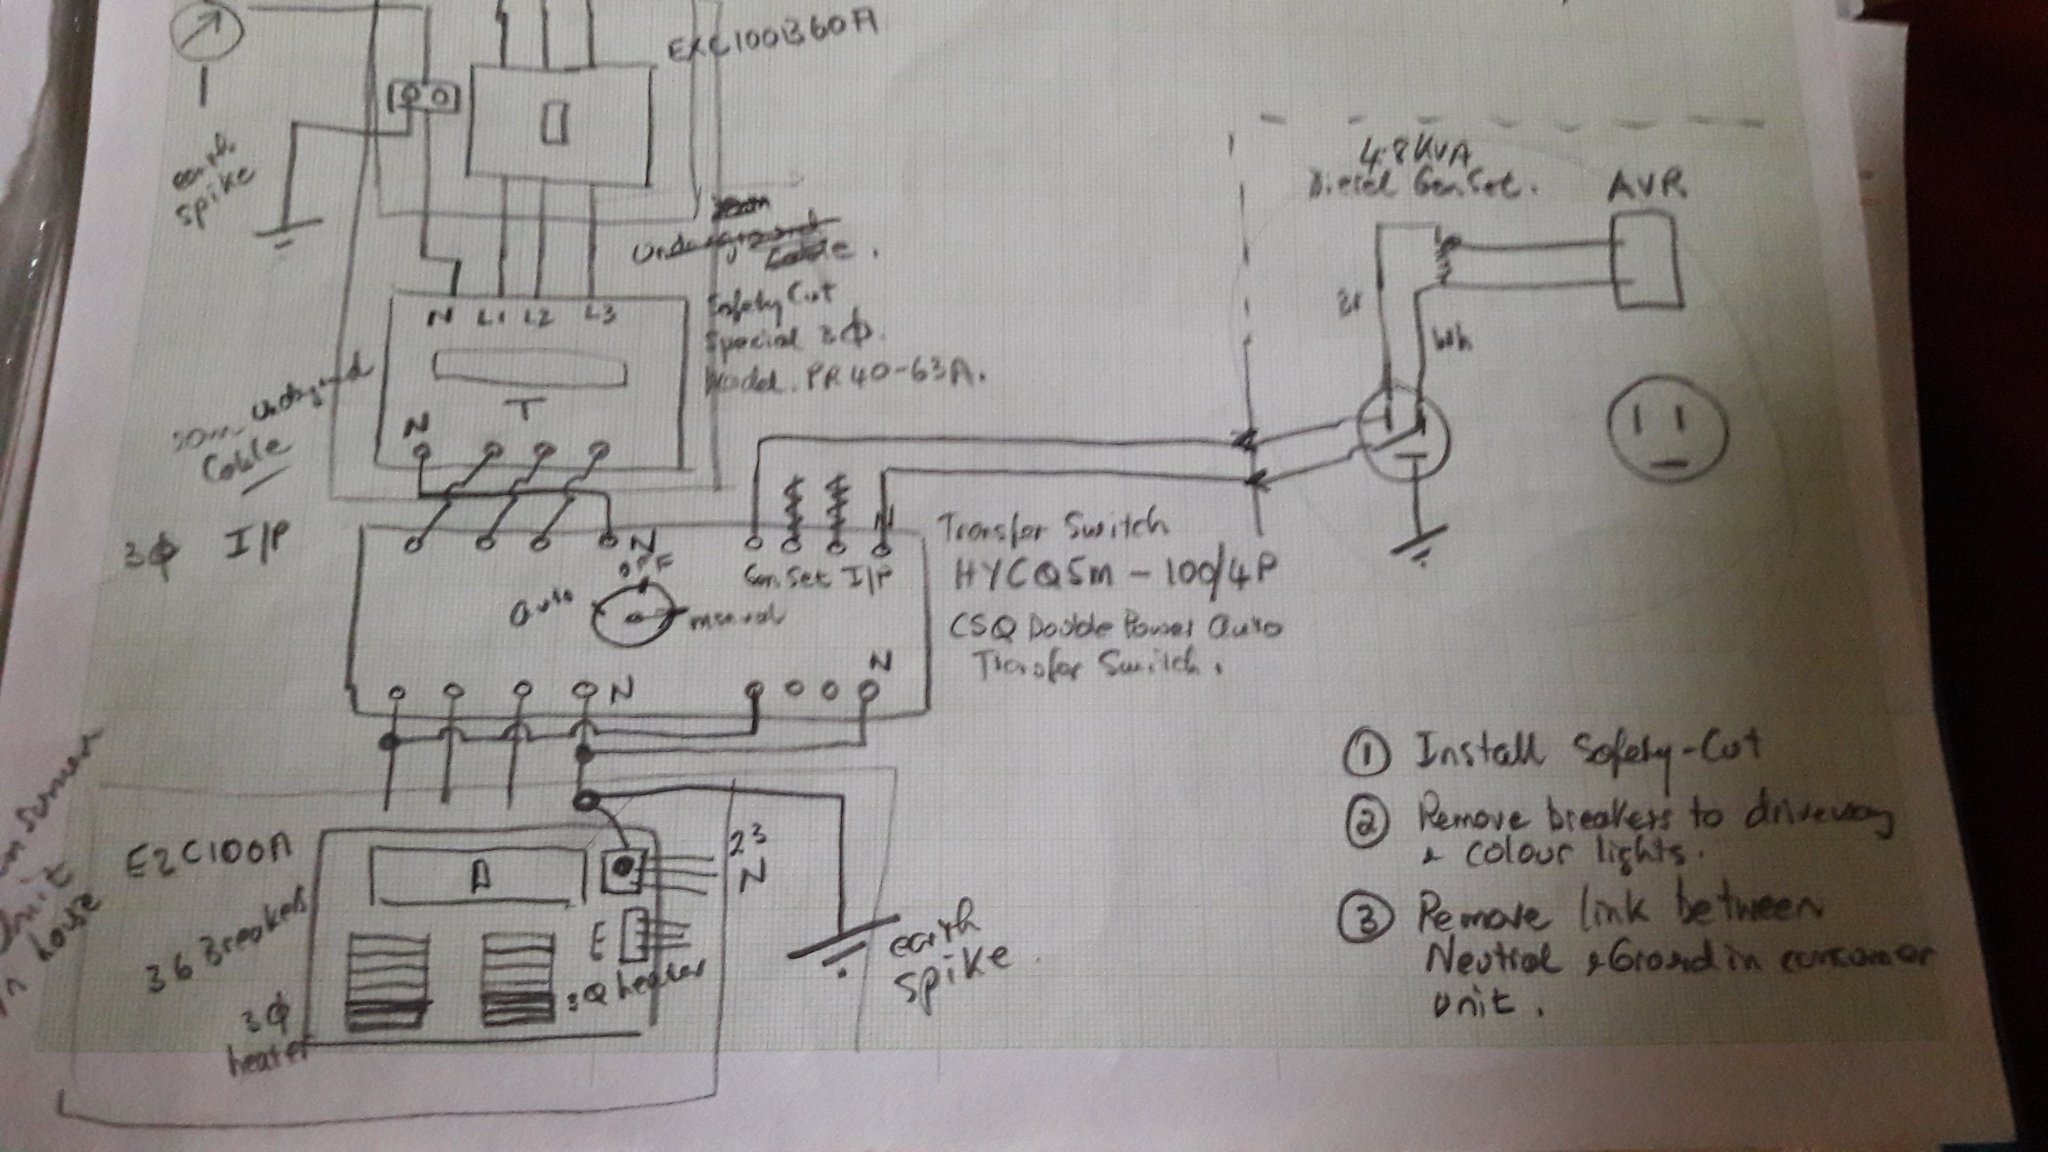 EXC100B60A
earth
spike
Underground
Cable.
N L1 L2 L3
Safety Cut
Special 3Φ.
Model. PR40-63A.
T
N
50m undergrnd
Cable
4.8KVA
Diesel GenSet.
AVR
Br
Wh
3Φ I/P
N
N
OFF
auto
manual
GenSet I/P
Transfer Switch
HYCQ5m - 100/4P
CSQ Double Power auto
Transfer Switch.
N
N
consumer
Unit
in house
EZC100A
36 Breakers
3Φ
heater
A
23
N
E
3Q heater
earth
spike.
① Install Safety-Cut
② Remove breakers to driveway
& colour lights.
③ Remove link between
Neutral & Ground in consumer
unit.